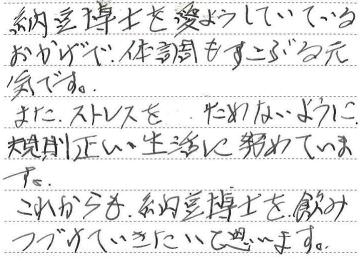 納豆博士を愛ようしている
おかげで、体調もすこぶる元
気です。
また、ストレスを ためないように、
規則正しい生活に努めていま
す。
これからも、納豆博士を飲み
つづけていきたいと思います。